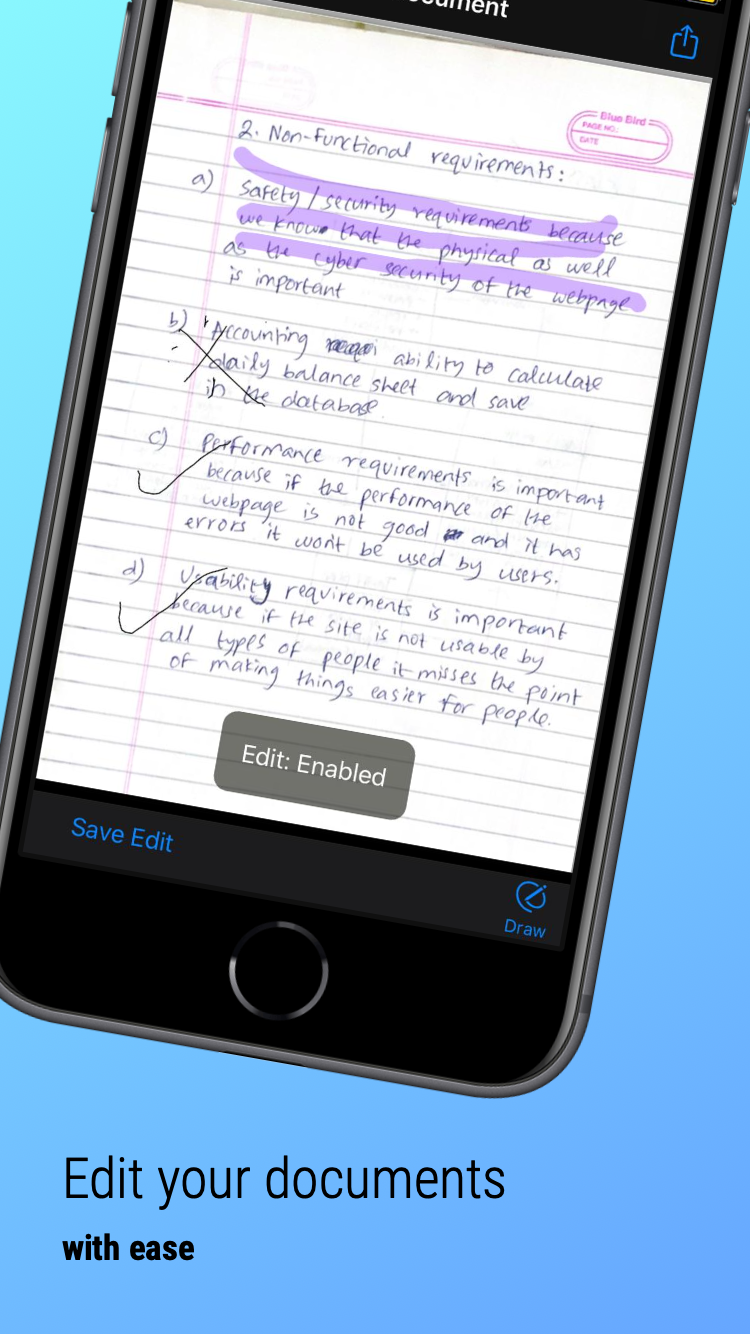 ocument
Blue Bird
PAGE NO.:
DATE
2. Non-functional requirements:
a) Safety/security requirements because
we know that the physical as well
as the cyber security of the webpage
is important
b) Accounting ability to calculate
daily balance sheet and save
in the database.
c) Performance requirements is important
because if the performance of the
webpage is not good and it has
errors it won't be used by users.
d) Usability requirements is important
because if the site is not usable by
all types of people it misses the point
of making things easier for people.
Edit: Enabled
Save Edit
Draw
Edit your documents
with ease